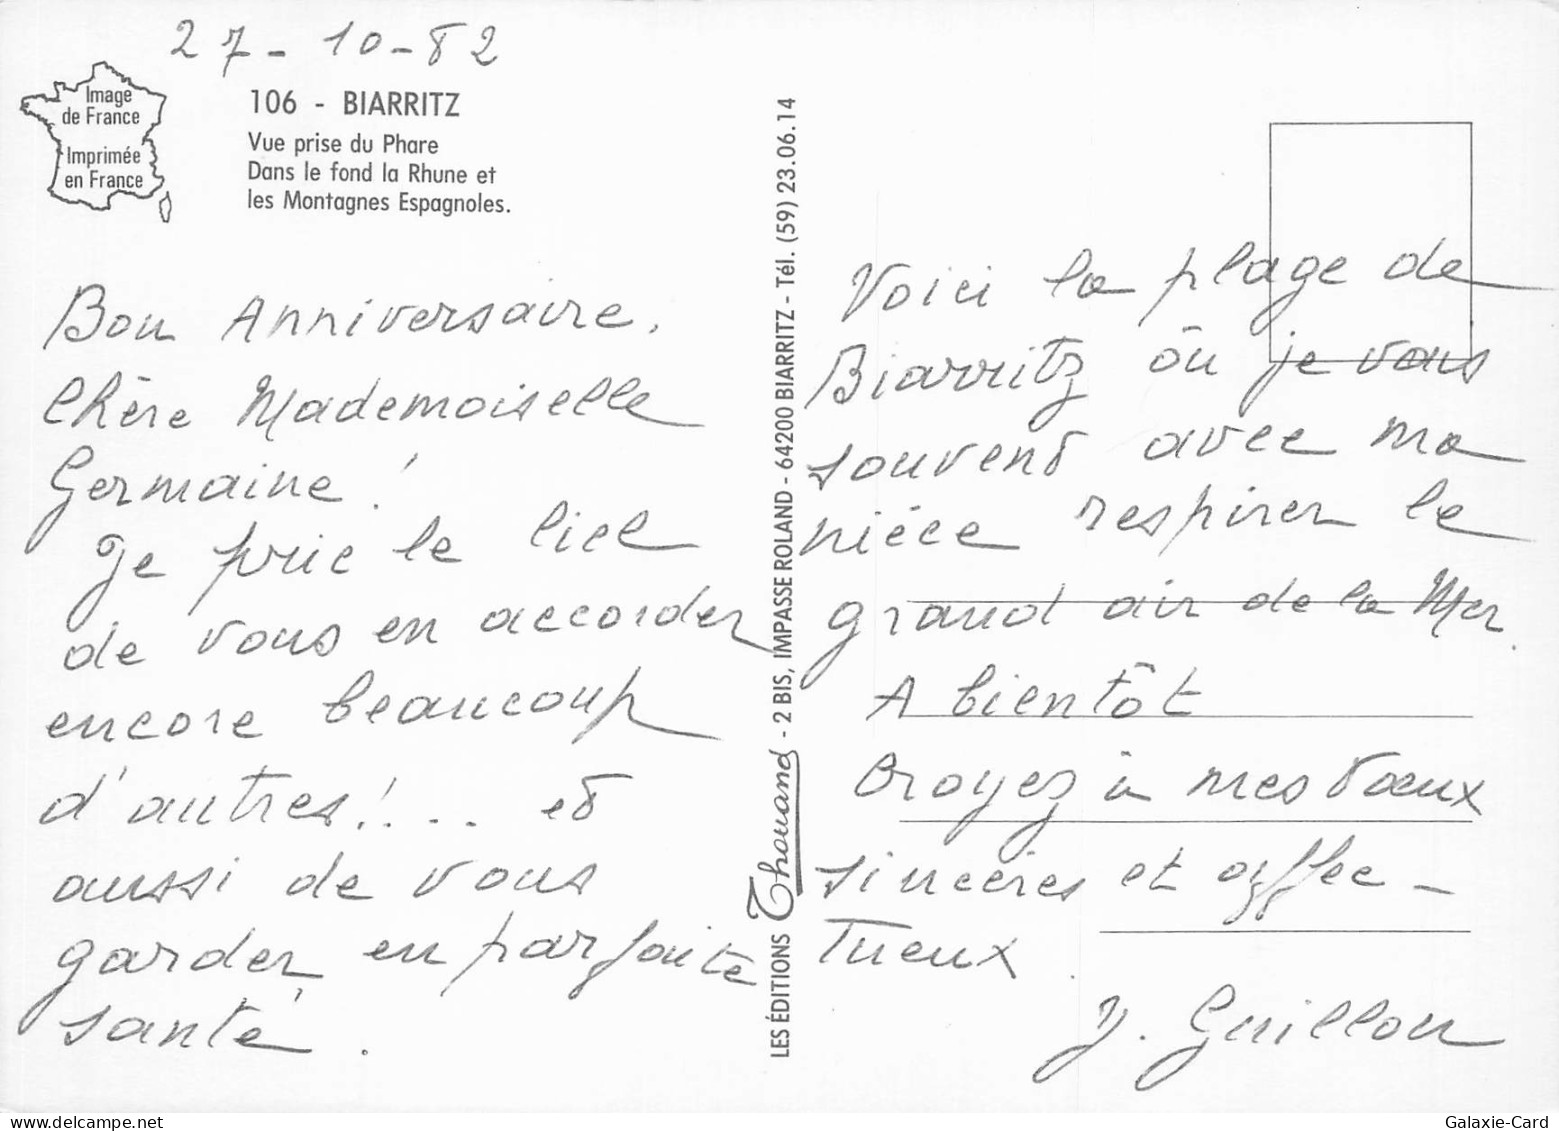 27-10-82
Image
de France
Imprimée
en France
106 - BIARRITZ
Vue prise du Phare
Dans le fond la Rhune et
les Montagnes Espagnoles.
Bon Anniversaire,
Chère Mademoiselle
Germaine !
Je prie le Ciel
de vous en accorder
encore beaucoup
d'autres!... et
aussi de vous
garder en parfaite
santé.
LES ÉDITIONS Thouand - 2 BIS, IMPASSE ROLAND - 64200 BIARRITZ - Tél. (59) 23.06.14
Voici la plage de
Biarritz où je vais
souvent avec ma
nièce respirer le
grand air de la Mer.
A bientôt
Croyez à mes vœux
sincères et affec-
tueux.
Y. Guillou
Galaxie-Card